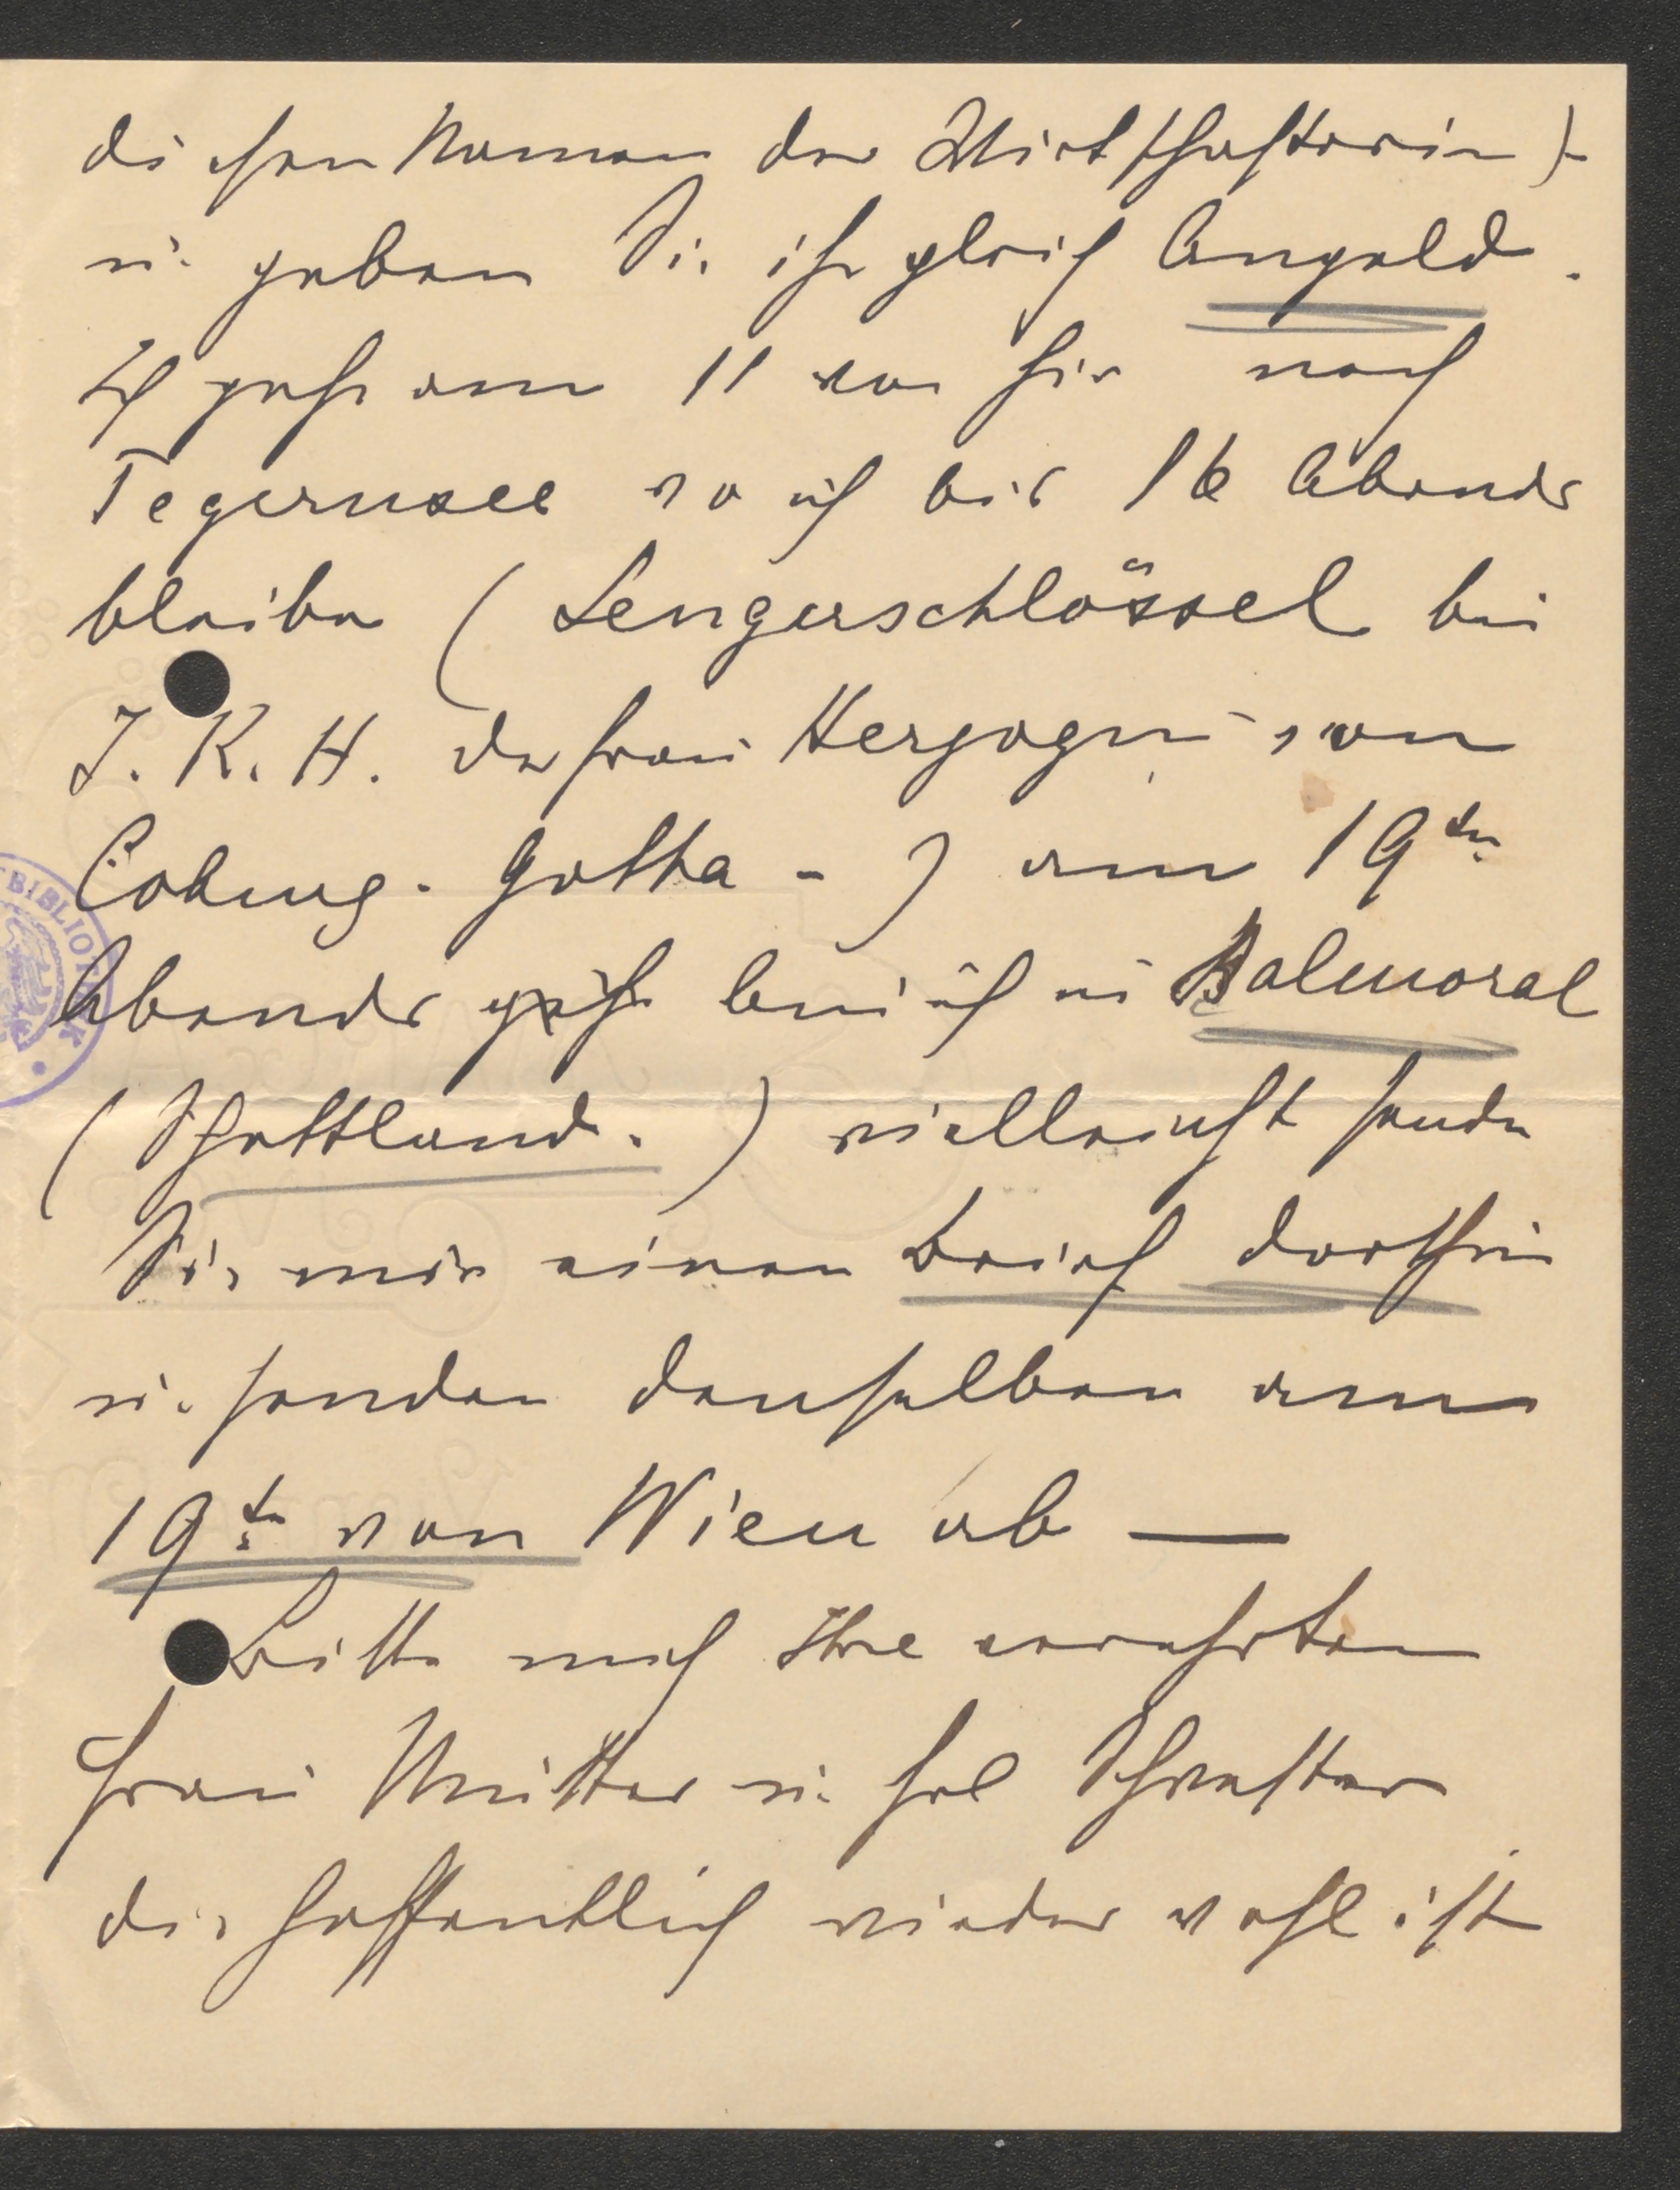 die schon Namen der Wirthschafterin)
u. geben Sie ihr gleich Angeld.
Ich gehe am 11 von hier nach
Tegernsee wo ich bis 16 Abends
bleibe (Sengerschlössel bei
I. K. H. der Frau Herzogin von
Coburg. Gotha - ) am 19ten
Abends bin ich in Balmoral
(Schottland.) vielleicht senden
Sie mir einen Brief dorthin
u. senden denselben am
19ten von Wien ab —
Bitte mich Ihre verehrten
Frau Mutter u. Frl Schwester
die hoffentlich wieder wohl ist
BIBLIOTHEK